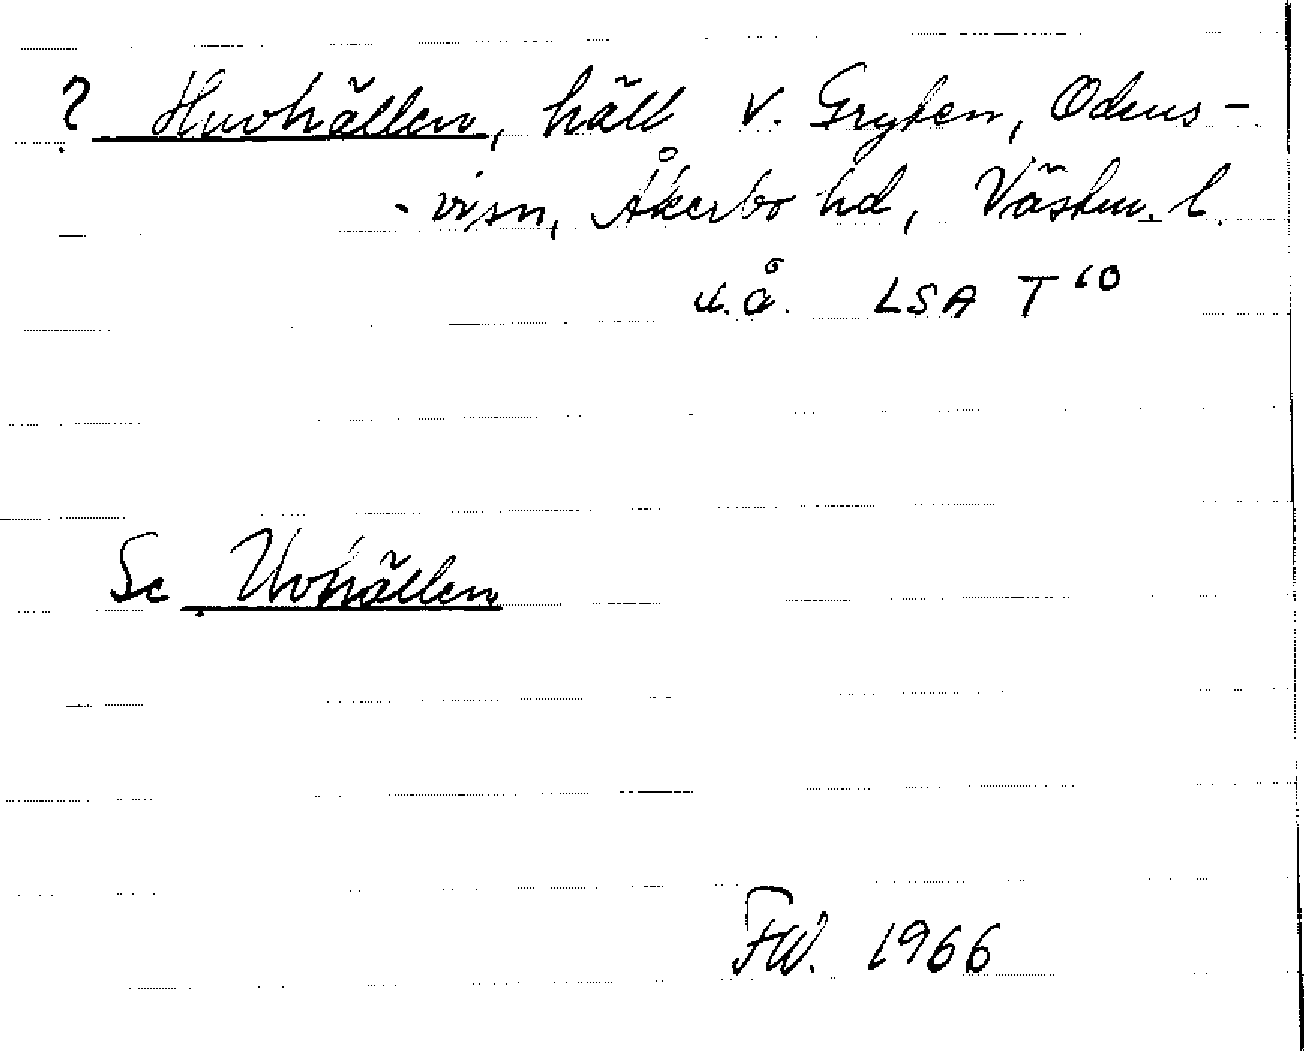 ? Huvhällen, häll v. Gryten, Odens-
-visn, Åkerbo hd, Västm. l.
u.å. LSA T 10
Se Uvhällen
FW. 1966